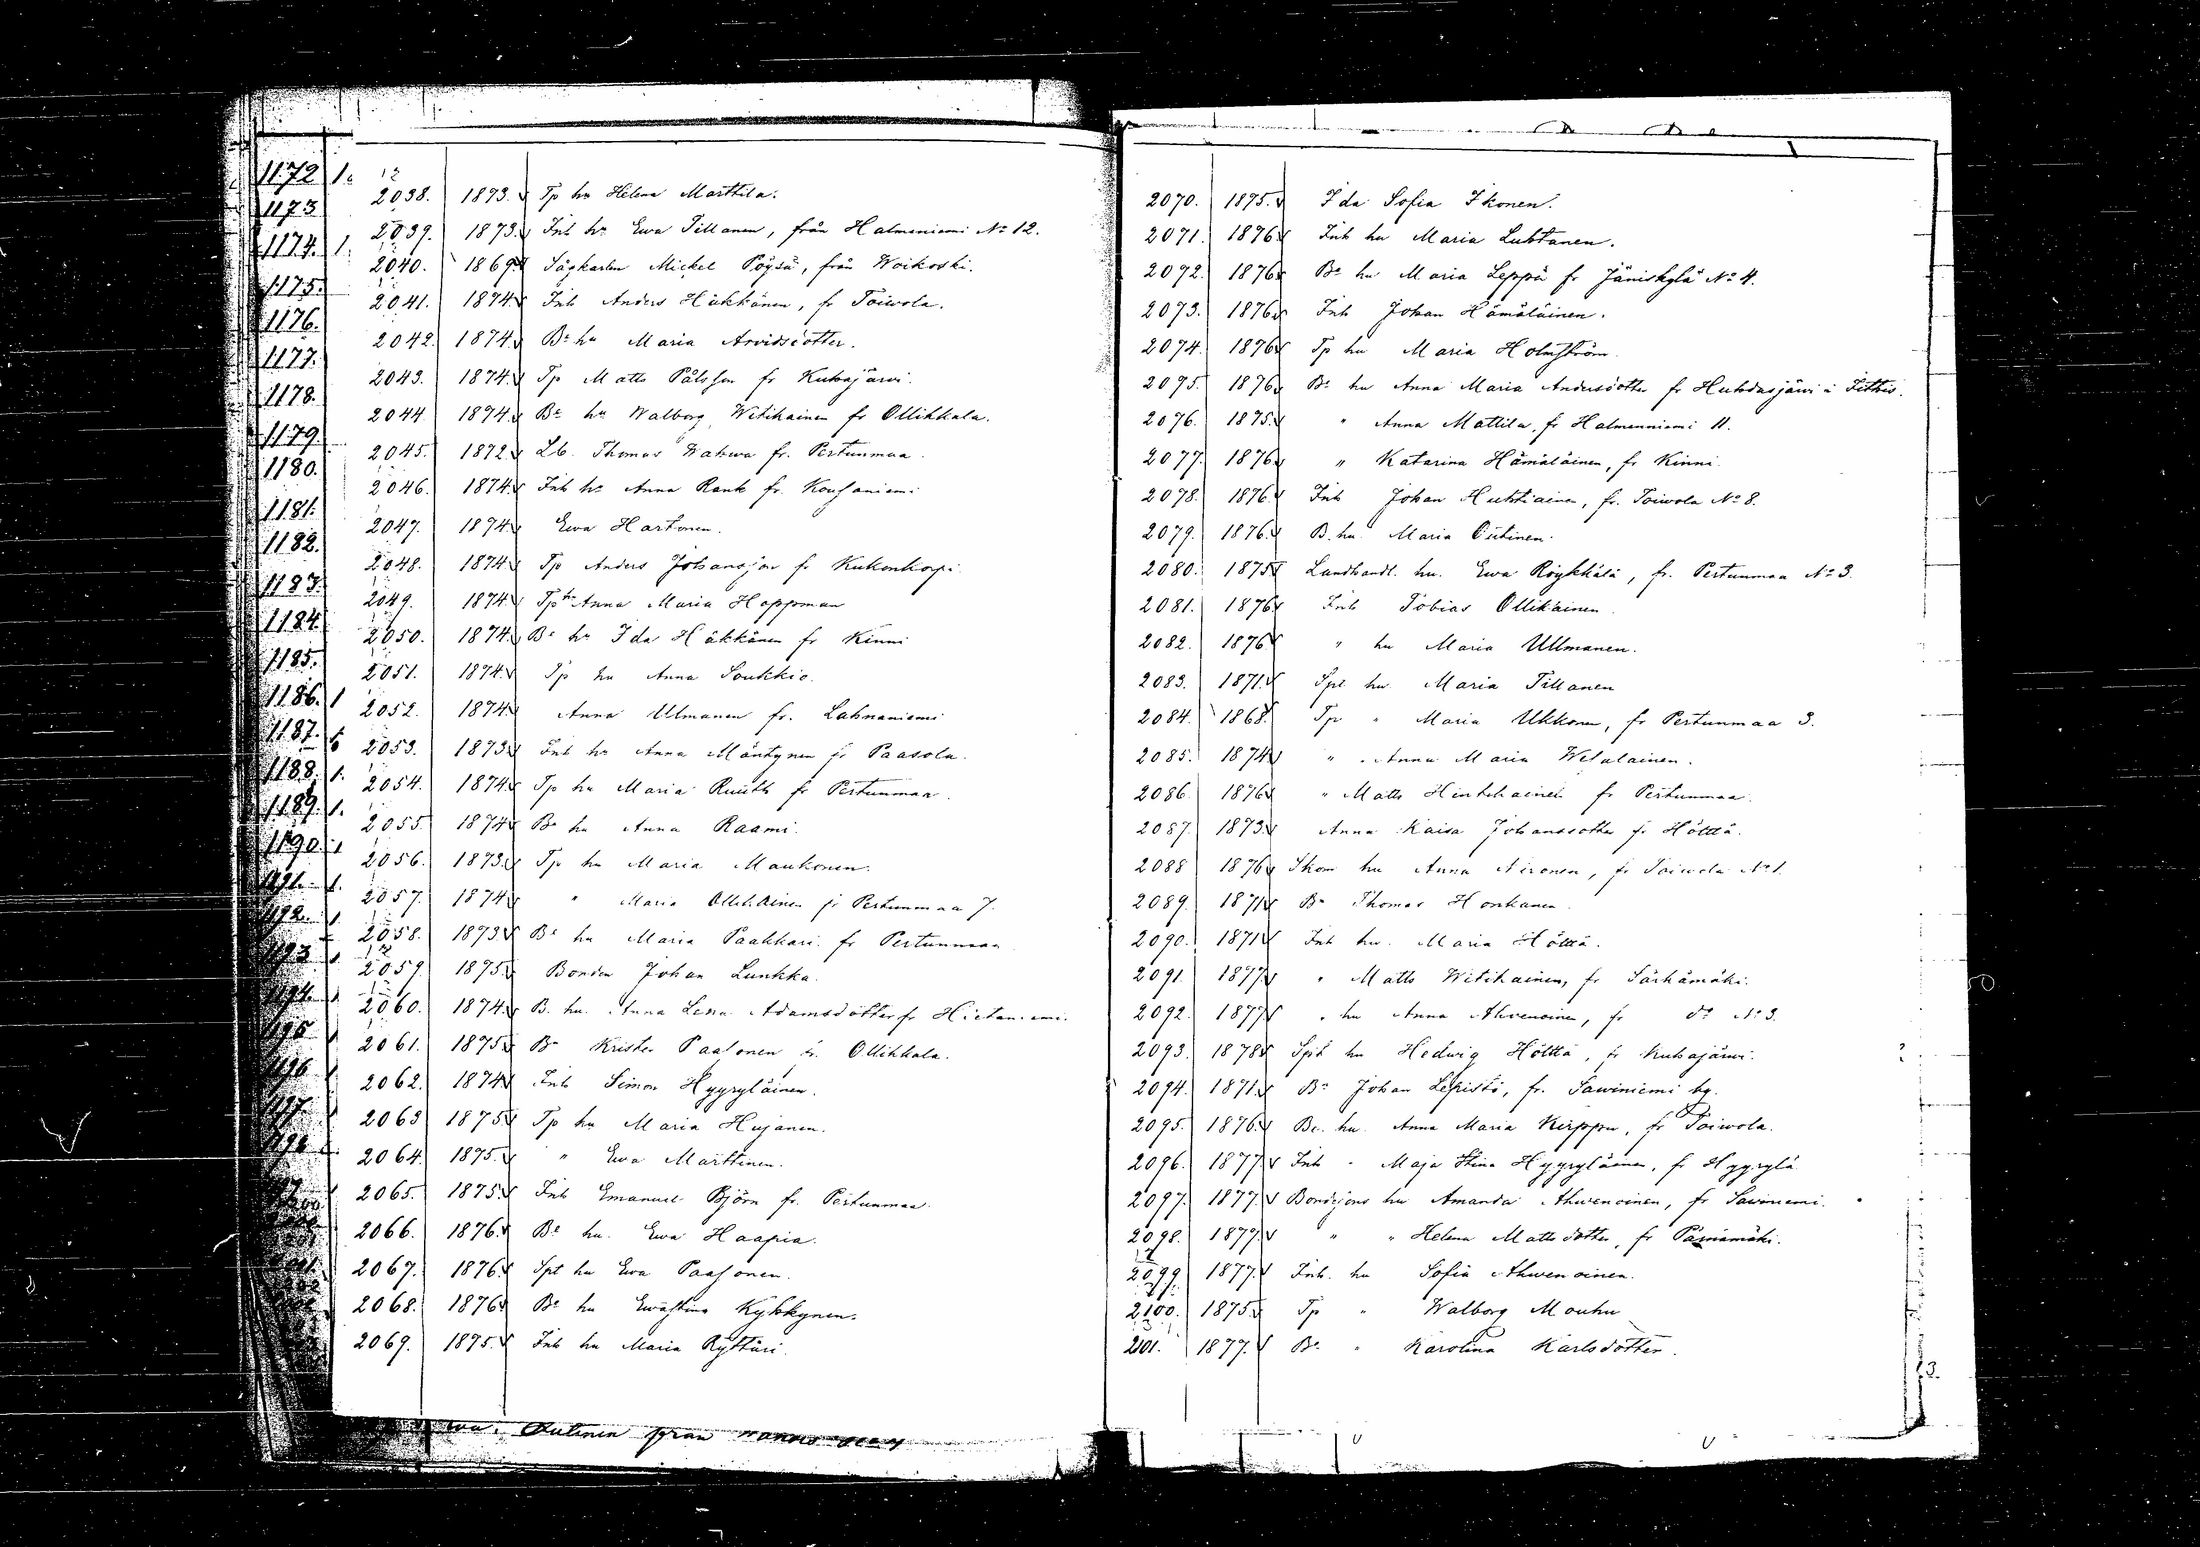 1172 1.
1173
1174. 1.
1175.
1176.
1177.
1178.
1179.
1180.
1181.
1182.
1183.
1184.
1185.
1186. 1
1187.
1188. 1.
1189. 1.
1190. 1
12
2038. 1873. Tp hu Helena Marttila.
2039. 1873. Inh hu Ewa Tillanen, från Halmeniemi No 12.
2040. 1869. Sågkarlen Mickel Pöysä, från Woikoski.
2041. 1874. Inh Anders Häkkänen, fr Toiwola.
2042. 1874. Be hu Maria Arvidsdotter.
2043. 1874. Tp Matts Pålsson fr Kuhajärwi.
2044 1874. Be hu Walborg Witikainen fr Ollikkala.
2045. 1872. Lb. Thomas Wahwa fr. Pertunmaa.
2046. 1874. Inh hu Anna Rank fr. Koufaniemi
2047. 1874. Ewa Hartonen.
2048. 1874. Tp Anders Johansson fr Kukonkorpi.
2049. 1874. Tp hu Anna Maria Hoppoman
2050. 1874. Be hu Ida Häkkänen fr Kinni
2051. 1874. Tp hu Anna Soukkio.
2052. 1874. Anna Ullmanen fr. Lahnaniemi
2053. 1873. Inh hu Anna Mäntynen fr Paasola.
2054. 1874. Tp hu Maria Ruuth fr Pertunmaa.
2055. 1874. Be hu Anna Raami.
2056. 1873. Tp hu Maria Maukonen.
2057. 1874. " Maria Ollikainen fr Pertunmaa 7.
2058. 1873. Be hu Maria Paakkari fr Pertunmaa
2059. 1875. Bonden Johan Lunkka.
2060. 1874. B. hu. Anna Lena Adamsdotter fr Hietaniemi.
2061. 1875. Be Krister Paasonen fr. Ollikkala.
2062. 1874. Inh Simon Hyyryläinen.
2063 1875. Tp hu Maria Hujanen.
2064. 1875. " Ewa Marttinen.
2065. 1875. Inh Emanuel Björn fr. Pertunmaa.
2066. 1876. Be hu. Ewa Haapia.
2067. 1876. Spt hu Ewa Paasonen.
2068. 1876. Be hu Ewastina Kykkynen.
2069. 1875. Inh hu Maria Ryttäri.
2070. 1875. Ida Sofia Ikonen.
2071. 1876. Inh hu Maria Luhtanen.
2072. 1876. Be hu Maria Leppä fr Jäniskylä No 4.
2073. 1876. Inh Johan Hämäläinen.
2074. 1876. Tp hu Maria Holmström.
2075. 1876. Be hu Anna Maria Andersdotter fr Huhdasjärwi i Iittis.
2076. 1875. " Anna Mattila, fr Halmenniemi 11.
2077. 1876. " Katarina Hämäläinen, fr Kinni.
2078. 1876. Inh Johan Huhtiainen, fr. Toiwola No 8.
2079. 1876. B. hu. Maria Outinen.
2080. 1875. Landhandl. hu. Ewa Röykkälä, fr. Pertunmaa No 3.
2081. 1876. Inh Tobias Ollikainen.
2082. 1876 " hu Maria Ullmanen.
2083. 1871. Spt hu Maria Tillanen
2084. 1868. Tp " Maria Ukkonen, fr Pertunmaa 3.
2085. 1874 " Anna Maria Welalainen.
2086. 1876. " Matts Hintikainen fr Pertunmaa.
2087. 1873. Anna Kaisa Johansdotter fr Hölttä.
2088 1876 Skom hu Anna Nironen, fr Toiwola No 1.
2089. 1871. Be Thomas Honkanen.
2090. 1871. Inh hu. Maria Hölttä.
2091. 1877. " Matts Witikainen, fr Särkämäki.
2092. 1877. " hu Anna Ahwenoinen, fr do No 3.
2093. 1878. Spt hu Hedwig Hölttä, fr Kuhajärwi.
2094. 1871. Be Johan Lepistö, fr. Sawiniemi by.
2095. 1876. Be. hu. Anna Maria Kirppu, fr Toiwola.
2096. 1877. Inh " Maja Stina Hyyryläinen, fr Hyyrylä
2097. 1877. Bondesons hu Amanda Ahwenoinen, fr Sawiniemi.
2098. 1877. " " Helena Mattsdotter, fr Pärnämäki.
2099. 1877. Inh. hu Sofia Ahwenoinen.
2100. 1875. Tp " Walborg Mouhu
2101. 1877. Be " Karolina Karlsdotter.